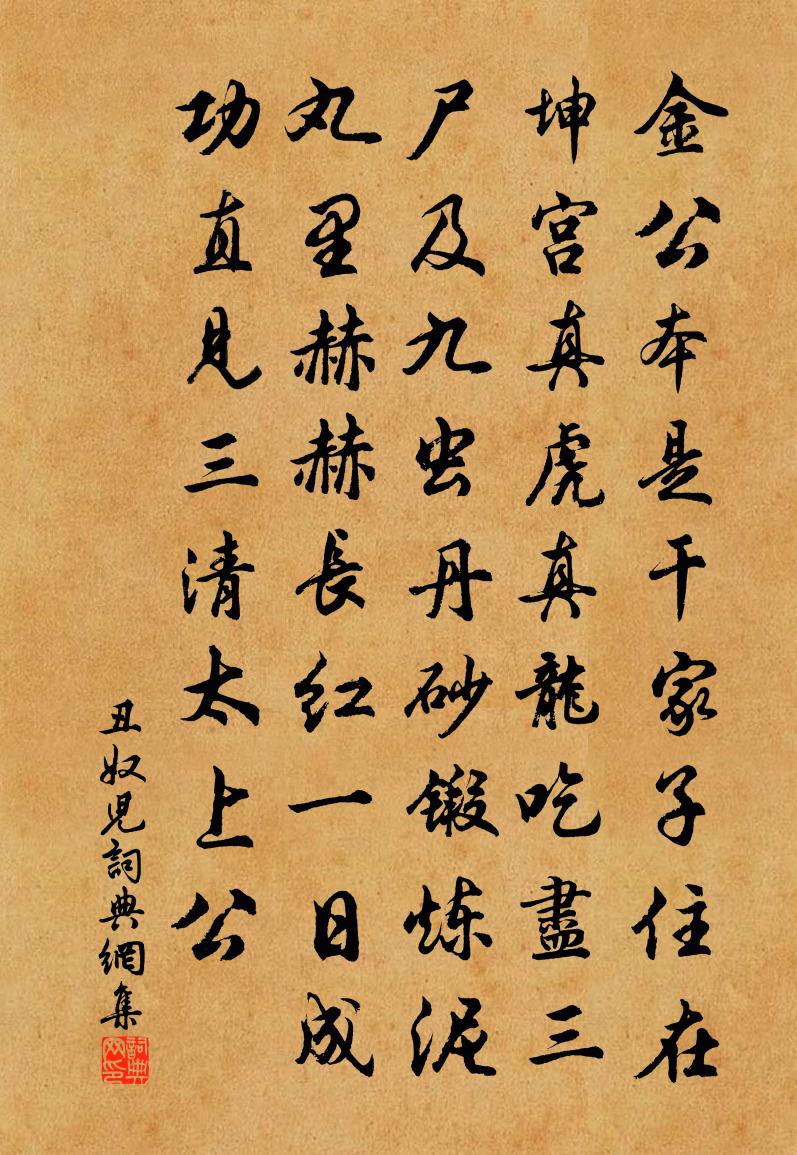 金公本是干家子住在
坤宫真虎真龍吃盡三
尸及九虫丹砂鍛炼泥
丸里赫赫長红一日成
功直見三清太上公
丑奴児詞典網集
詞典网印